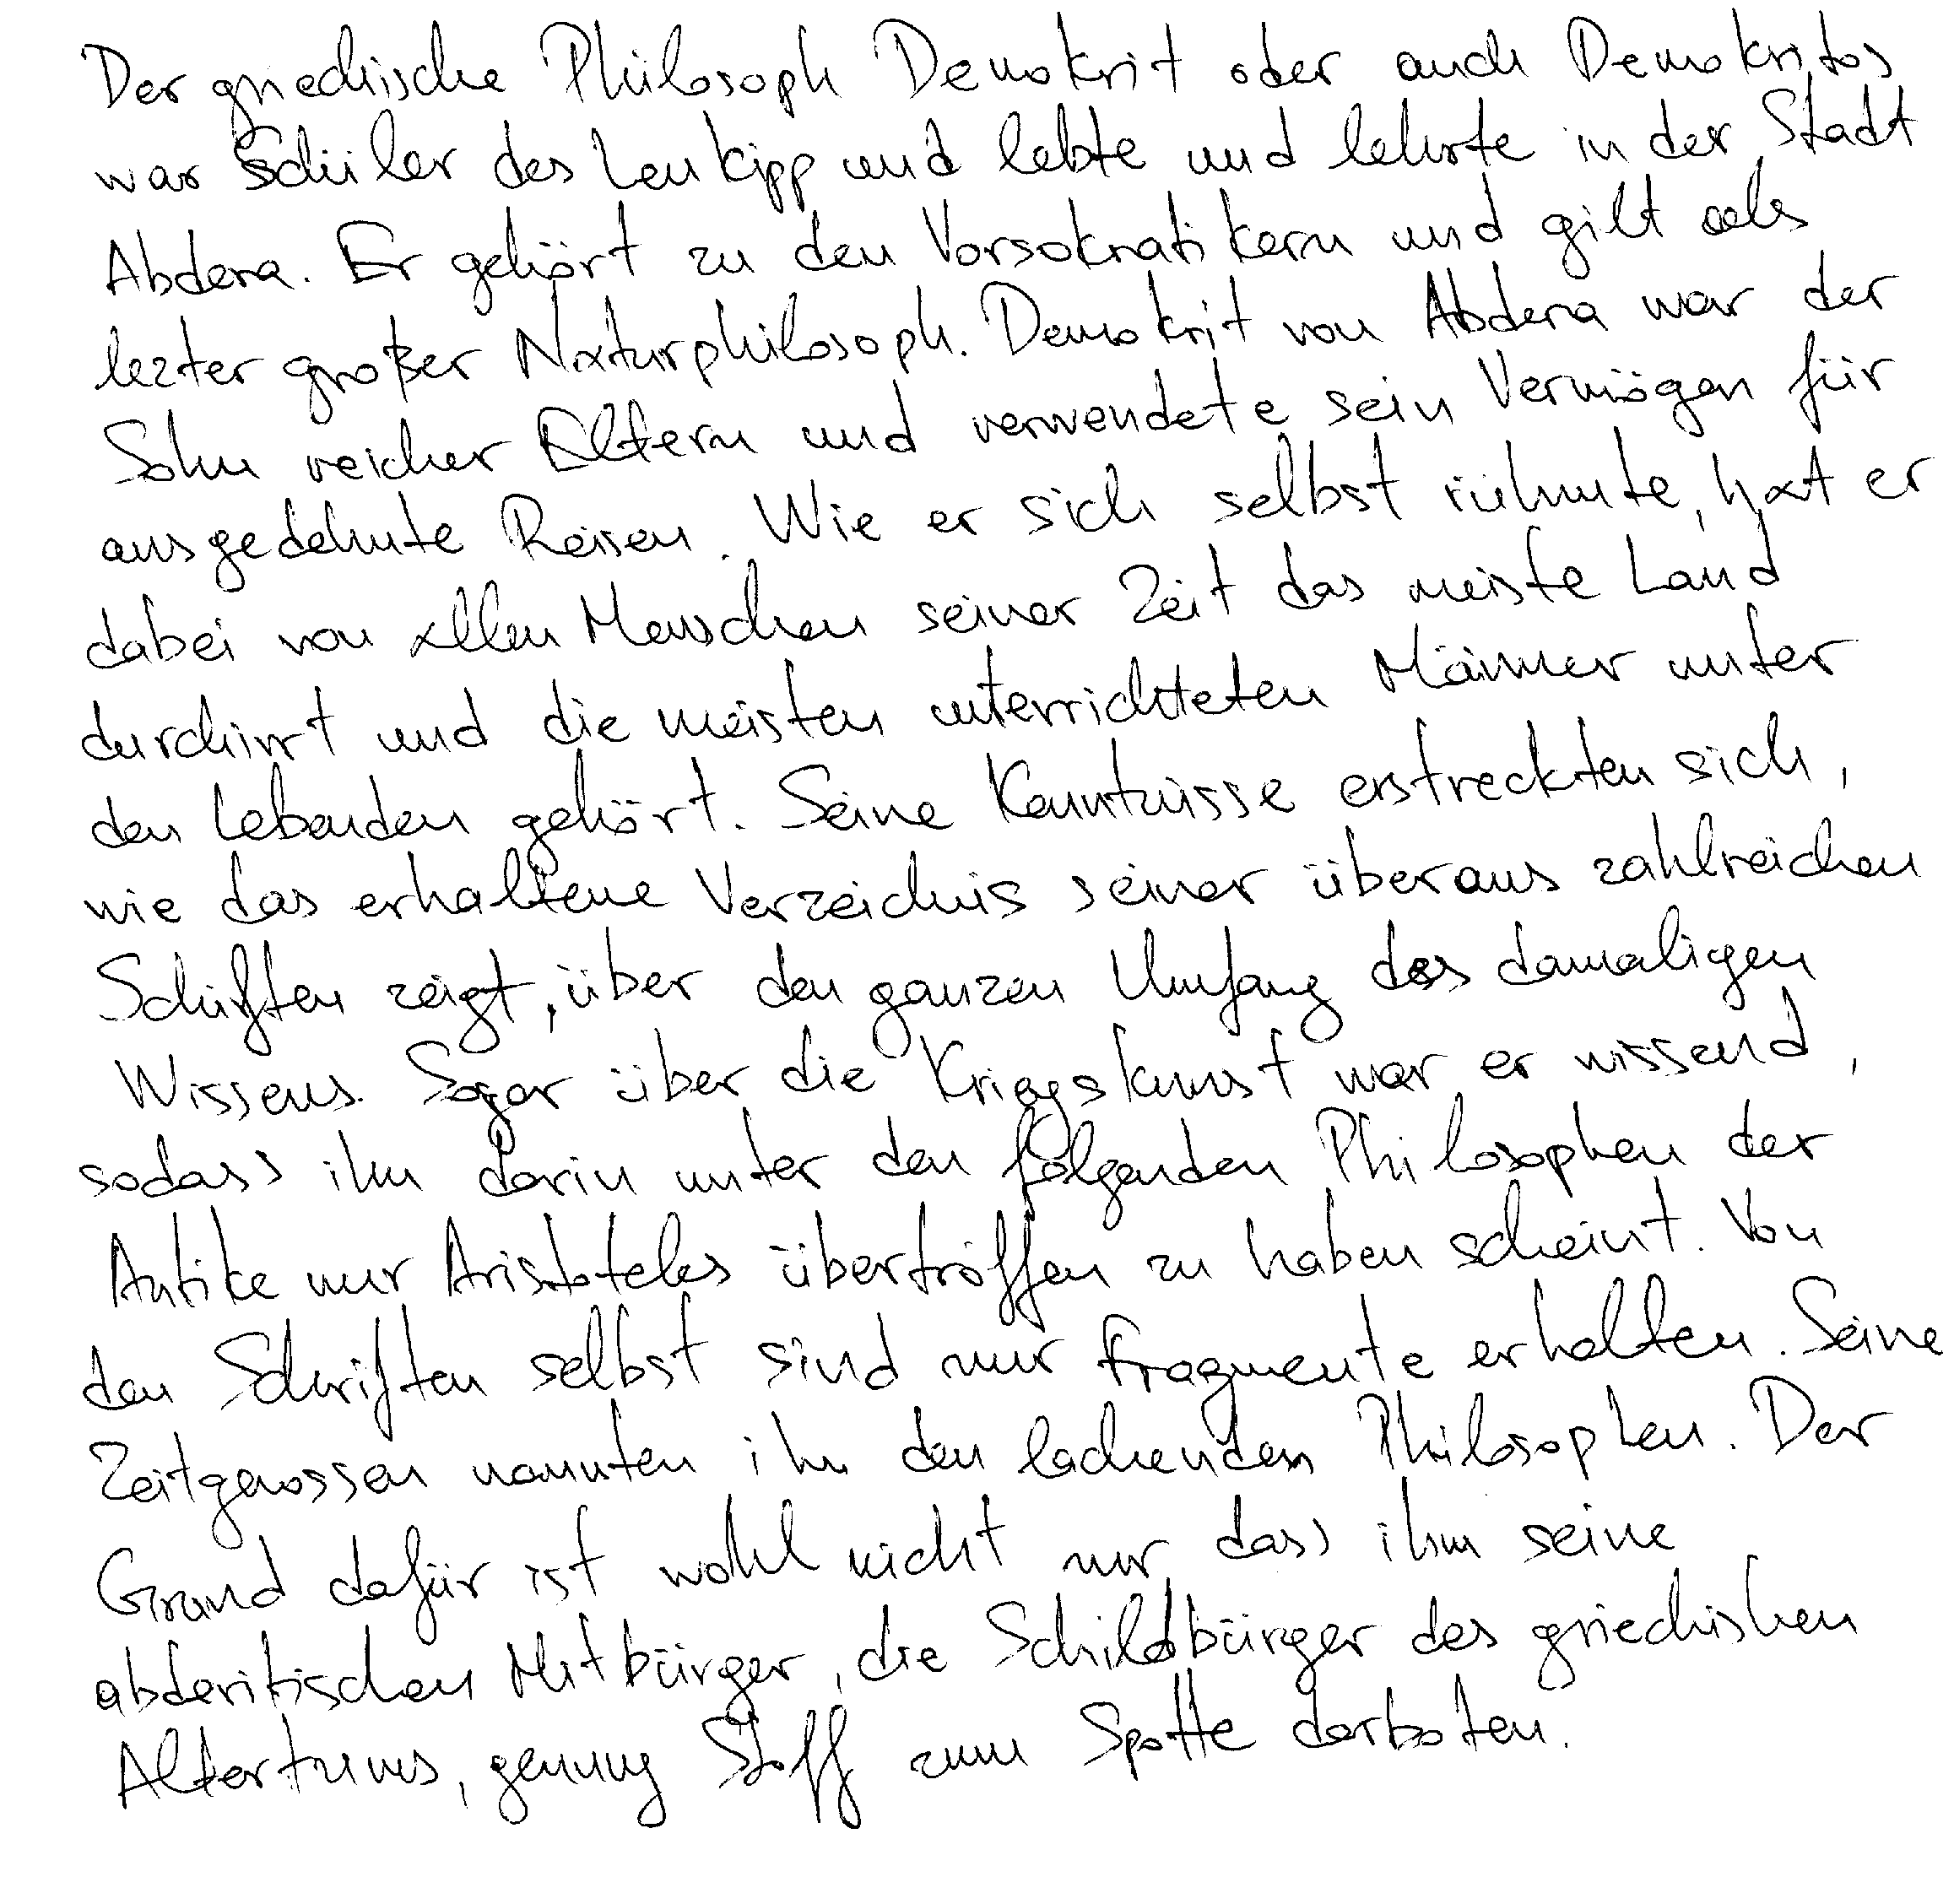 Der griechische Philosoph Demokrit oder auch Demokritos
war Schüler des Leukipp und lebte und lehrte in der Stadt
Abdera. Er gehört zu den Vorsokratikern und gilt als
lezter großer Naturphilosoph. Demokrit von Abdera war der
Sohn reicher Eltern und verwendete sein Vermögen für
ausgedehnte Reisen. Wie er sich selbst rühmte, hat er
dabei von allen Menschen seiner Zeit das meiste Land
durchirrt und die meisten unterrichteten Männer unter
den Lebenden gehört. Seine Kenntnisse erstreckten sich,
wie das erhaltene Verzeichnis seiner überaus zahlreichen
Schriften zeigt, über den ganzen Umfang des damaligen
Wissens. Sogar über die Kriegskunst war er wissend,
sodass ihn darin unter den folgenden Philosophen der
Antike nur Aristoteles übertroffen zu haben scheint. Von
den Schriften selbst sind nur Fragmente erhalten. Seine
Zeitgenossen nannten ihn den lachenden Philosophen. Der
Grund dafür ist wohl nicht nur, dass ihm seine
abderitischen Mitbürger, die Schildbürger des griechishen
Altertums, genung Stoff zum Spotte darboten.